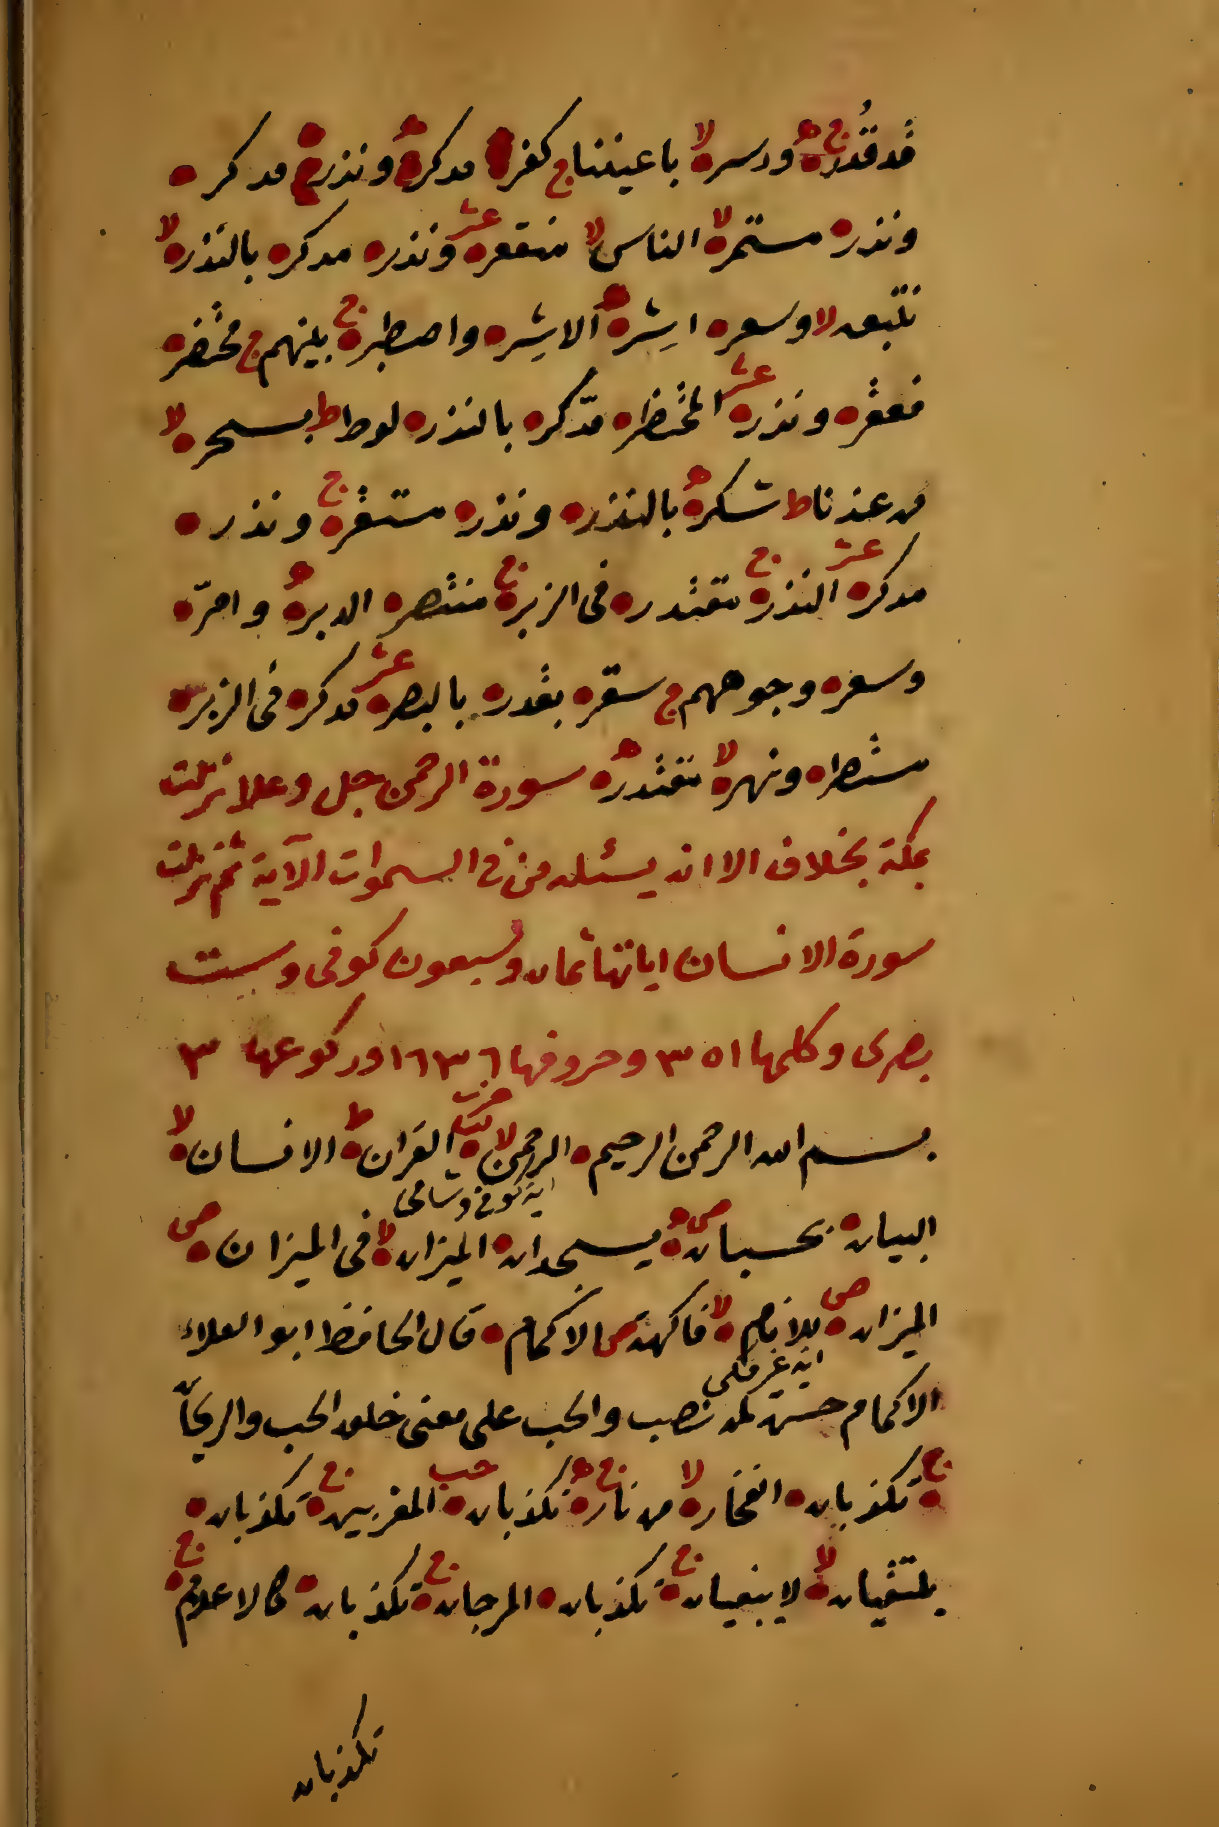 قد قُدر ج ه ودسر لا باعيننا ج كفر مدكر ه ونذر مدكر
ونذر مستمر لا الناس لا منقعر عشر ونذر مدكر بالنذر لا
نتبعه لا وسعر اشِر ه الاشِر واصطبر ج بينهم ج محتضر
فعقر ونذر عشر المحتظر مدّكر بالنذر لوط ط بسحر لا
من عندنا ط شكر ه بالنذر ونذر مستقر ج ونذر
مدكر عشر النذر ج مقتدر فى الزبر ج منتصر الدبر ه وامرّ
وسعر وجوههم ج سقر بقدر بالبصر عشر مدكر فى الزبر
مستطر ونهر لا مقتدر ه سورة الرحمن جل وعلا نزلت
بمكة بخلاف الا انه يسئله من فى السموات الآية ثم نزلت
سورة الانسان اياتها ثمان وسبعون كوفى وست
بصرى وكلمها ٣٥١ وحروفها ١٦٣٦ وركوعها ٣
بسم الله الرحمن الرحيم الرحمن لا القران ط الانسان لا
اية كوفى وشامى
البيان بحسبان ص يسجدان الميزان لا فى الميزان ص
الميزان للانام ص فاكهة لا ص الاكمام قال الحافظ ابو العلاء
اية غير مكى
الاكمام حسن لمن نصب والحب على معنى خلق الحب والريحان
ج تكذبان الفخار لا من نار ج ه تكذبان حب المغربين ج تكذبان
يلتقيان لا لا يبغيان ج تكذبان المرجان ج تكذبان كالاعلام ج
تكذبان